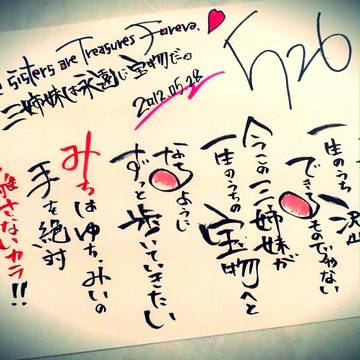 sisters are Treasures Foreva.
三姉妹は永遠に宝物だ。
2012.05.28
526
一生のうち
できるものじゃない
今この三姉妹が
一生のうちの宝物へと
なるように
ずっと歩いていきたい
みちはゆち、みいの
手を絶対
離さないカラ!!